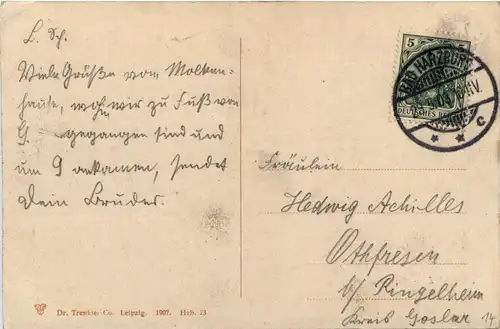 L. Sch.
Viele Grüße vom Molken-
hause, wohin wir zu Fuß von
H. gegangen sind und
um 9 ankamen, sendet
Dein Bruder.
5 5
BAD HARZBURG
DEUTSCHES
c
Fräulein
Hedwig Achilles
Othfresen
b/ Ringelheim
Kreis Goslar
Dr. Trenkler Co. Leipzig. 1907. Hzb. 23
14